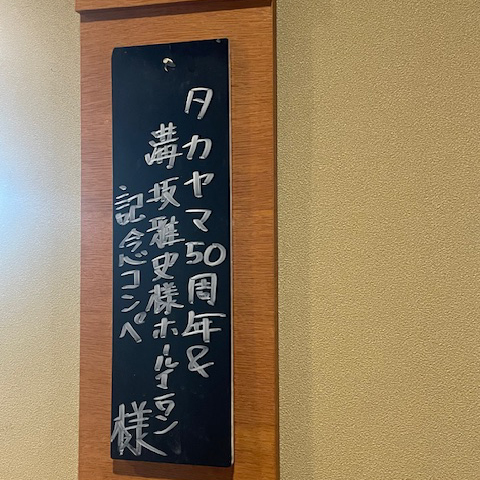 タカヤマ50周年&
溝坂雅史様ホールインワン
記念コンペ
様